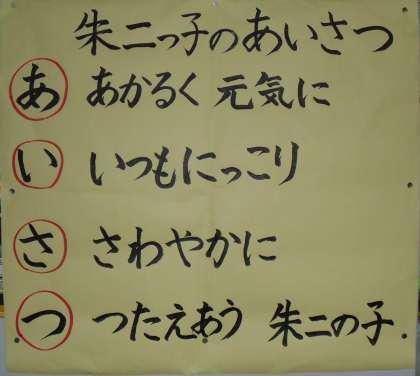 朱二っ子のあいさつ
あ あかるく 元気に
い いつもにっこり
さ さわやかに
つ つたえあう 朱二の子